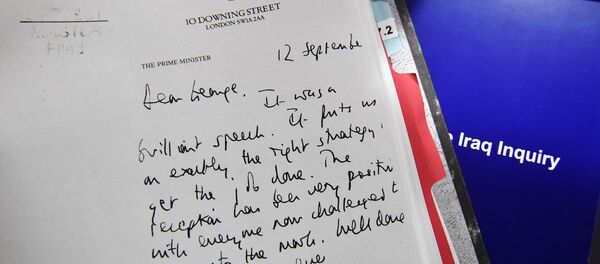 MINISTER
Filed
10 DOWNING STREET
LONDON SW1A 2AA
THE PRIME MINISTER
12 September
Dear George. It was a
brilliant speech. It puts us
on exactly the right strategy to
get the job done. The
reception has been very positive
with everyone now challenged to
to the mark. Well done
7.2
e Iraq Inquiry